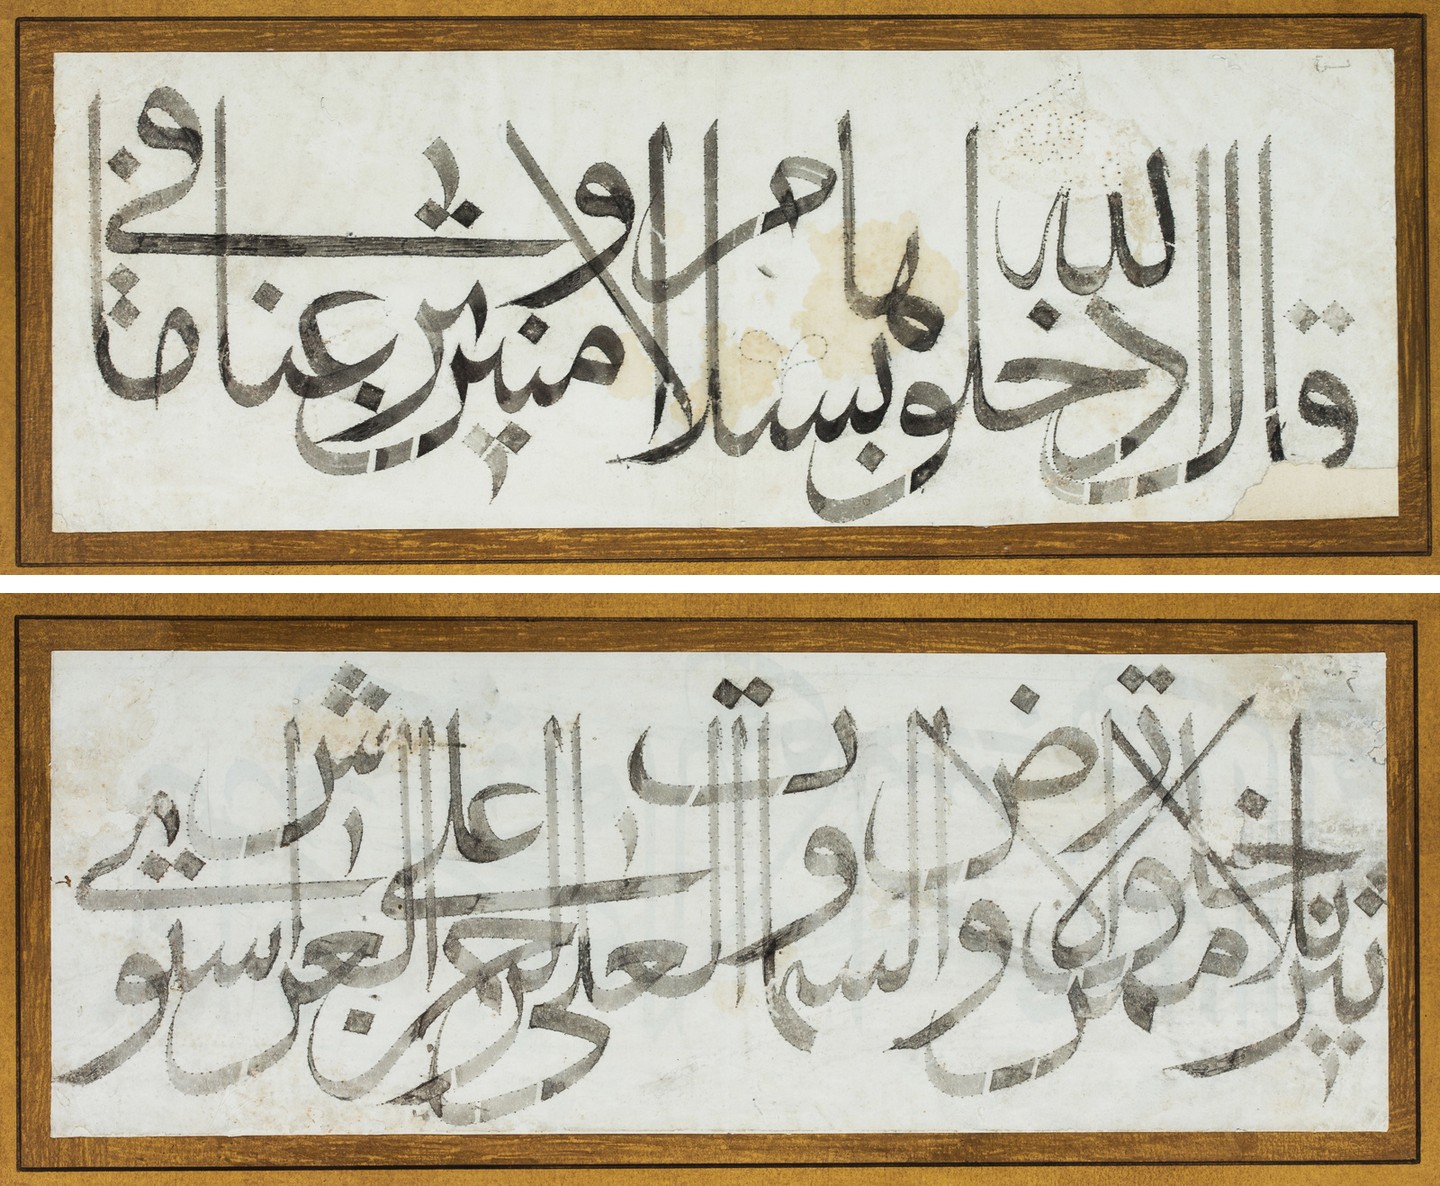 قال الله ادخلوها بسلام امنين و نزعنا ما فى
تنزيلا ممن خلق الارض و السموات العلى الرحمن على العرش استوى